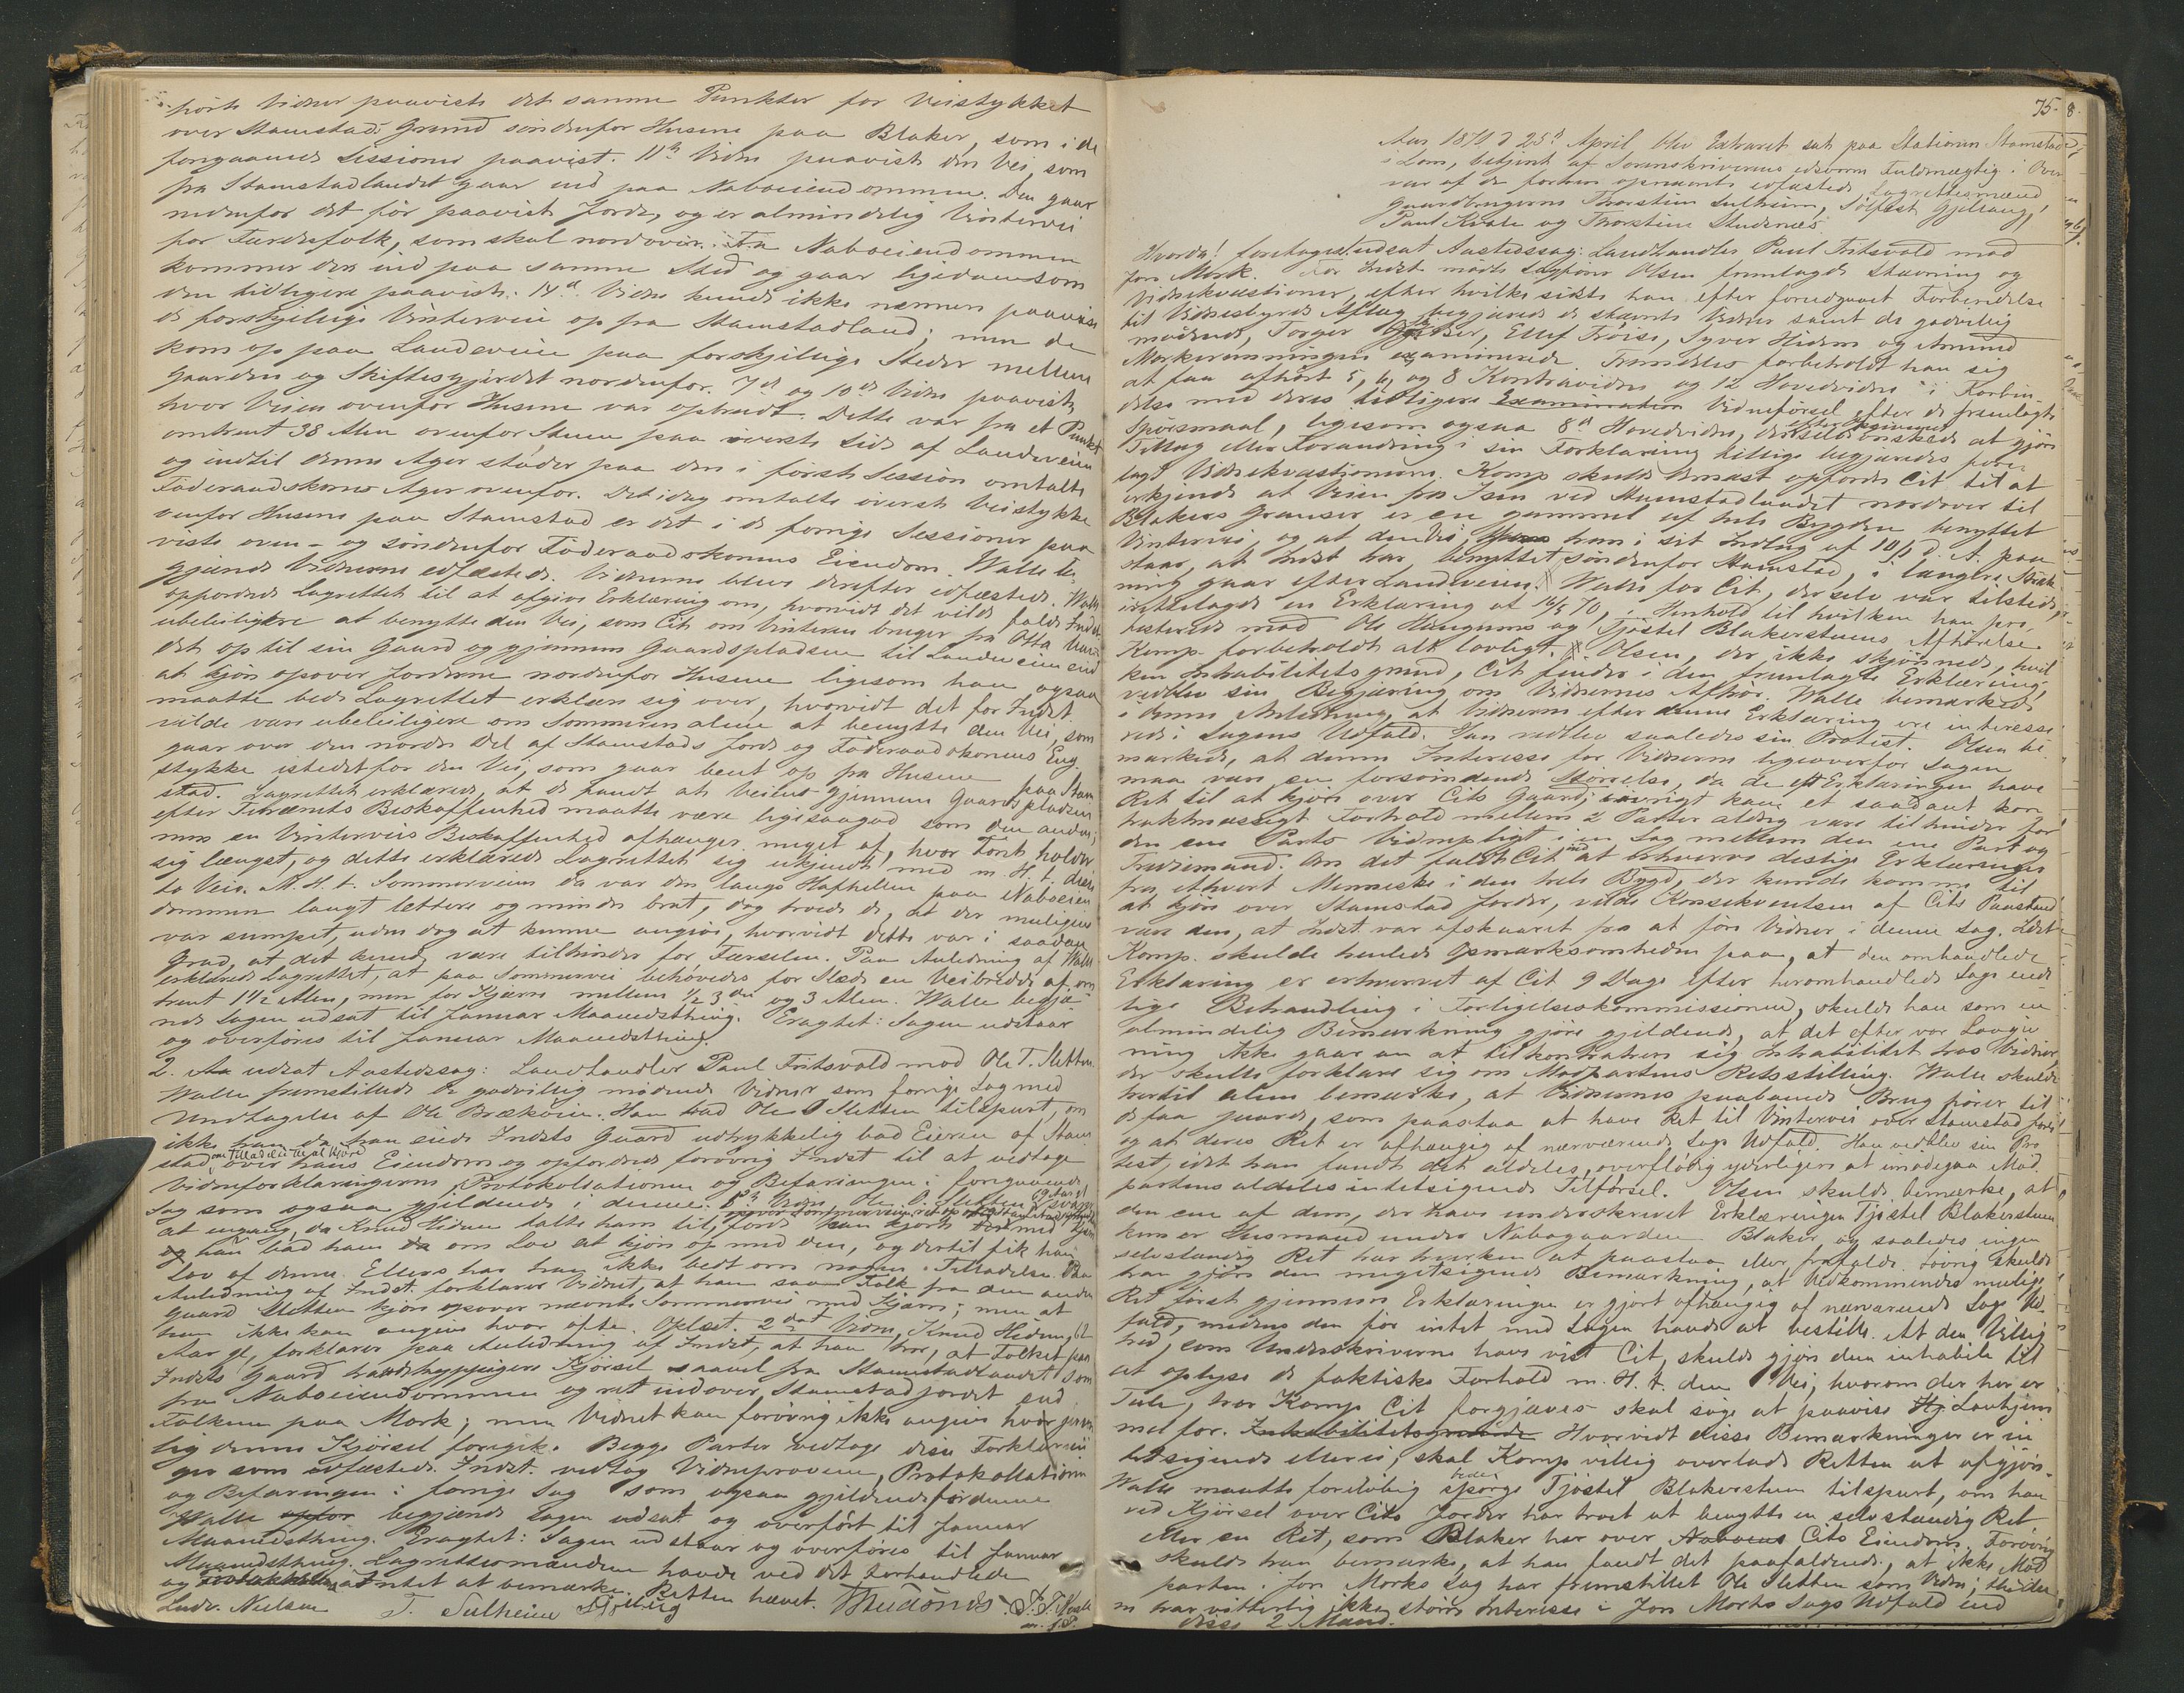 hørte Vidner paaviste det samme Punkter for Veistykket
over Stamstads Grund søndenfor Husene paa Blaker, som i de
foregaaende Sessioner paavist. 11te Vidne paaviste den Vei, som
fra Stamstadlandet gaar ind paa Naboeiendommen. Den gaar
nedenfor det før paaviste Jorde, og er almindelig Vintervei
for Færdesfolk, som skal nordover. Fra Naboeiendommen
kommer den ind paa samme Sted og gaar ligedan som
den tidligere paaviste. 14de Vidne kunde ikke nærmere paavise
de forskjellige Vinterveie op fra Stamstadland; men de
kom op paa Landeveien paa forskjellige Steder mellem
Gaarden og Skiftesgjerdet nordenfor. 7de og 10de Vidne paaviste,
hvor Veien ovenfor Husene var opbrudt. Dette var fra et Punkt
omtrent 38 Alen ovenfor Stuen paa øverste Side af Landeveien
og indtil denne Ager støder paa den i første Session omtalte
Føderaadskones Ager ovenfor. Det idag omtalte øverste Veistykke
ovenfor Husene paa Stamstad er det i de forrige Sessioner paa
viste oven- og søndenfor Føderaadskonens Eiendom. Walle be
gjærede Vidnerne edfæstede. Vidnerne blev derefter edfæstede. Walle
opfordrede Lagrettet til at afgive Erklæring om, hvorvidt det vilde falde Indst.
ubeleiligere at benytte den Vei, som Cit. om Vinteren bruger fra Otta
det op til sin Gaard og gjennem Gaardspladsen til Landeveien end
at kjøre opover Jorderne nordenfor Husene ligesom han ogsaa
maatte bede Lagrettet erklære sig over, hvorvidt det for Indst.
vilde være ubeleiligere om Sommeren alene at benytte den Vei, som
gaar over den nordre Del af Stamstads Jorde og Føderaadskonens Eng
stykke istedetfor den Vei, som gaar bent op fra Husene paa Stam
stad. Lagrettet erklærede, at de fandt at Veien gjennem Gaardspladsen
efter Terrænets Beskaffenhed maatte være ligesaagod som den anden;
men en Vinterveis Beskaffenhed afhænger meget af, hvor Føret holder
sig længst, og dette erklærede Lagrettet sig ukjendt med m. H. t. disse
to Veie. M. H. t. Sommerveien da var den langs Hafhellen paa Naboeien
dommen langt lettere og mindre brat, dog troede de, at der muligens
var sumpet, uden dog at kunne angive, hvorvidt dette var i saadan
Grad, at det kunde være tilhinder for Færselen. Paa Anledning af Walle
erklærede Lagrettet, at paa Sommervei behøvedes for Slæde en Veibredde af om
trent 1 1/2 Alen, men for Kjærre mellem 2 1/2 og 3 Alen. Walle begjæ
rede Sagen udsat til Januar Maanedsthing. Eragtet: Sagen udstaar
og overføres til Januar Maanedsthing.
2. udsat Aastedssag: Landhandler Paul Fritsvold mod Ole T. Sletten.
Walle fremstillede de godvillig mødende Vidner som forrige Sag med
Undtagelse af Ole Brækøien. Han bad Ole O Sletten tilspurt, om
ikke han da han eiede Indsts Gaard udtrykkelig bad Eieren af Stam
stad om Tilladelse til at kjøre over hans Eiendom og opfordrede forøvrig Indst til at vedtage
Vidneforklaringerne, Protokollationen og Befaringen i foregaaende
Sag som ogsaa gjeldende i denne. 1ste Vidne, Ole O. Sletten, 69 Aar gl. svarede
at engang, da Knud Hidem talte ham til, fordi han kjørte
og han bad ham om Lov at kjøre op med den, og dertil fik han
Lov af denne. Ellers har han ikke bedt om nogen Tilladelse. Paa
Anledning af Indst. forklarer Vidnet, at han saa Folk fra den anden
Gaard Sletten kjøre opover nævnte Sommervei med Kjærre; men at
han ikke kan angive hvor ofte. Oplæst. 2det Vidne, Knud Hidem, 62
Aar gl, forklarer paa Anledning af Indst, at han tror, at Folket paa
Indsts Gaard havde hyppigere Kjørsel saavel fra Stamstadlandet som
fra Naboeiendommen og ret indover Stamstadjordet end
Folkene paa Mork; men Vidnet kan forøvrig ikke angive hvor jevn
lig denne Kjørsel foregik. Begge Parter vedtage disse Forklarin
ger som edfæstede. Indst. vedtog Vidneprovene, Protokollationen
og Befaringen i forrige Sag som ogsaa gjeldende for denne
Walle begjærede Sagen udsat og overført til Januar
Maanedsthing. Eragtet: Sagen udstaar og overføres til Januar
Maanedsthing. Lagrettesmændene havde ved det Forhandlede
og intet at bemærke. Retten hævet.
Ludv. Nielsen T. Sulheim
75.
Aar 1871 d 25de April blev Extraret sat paa Stationen Stamstad
i Lom, betjent af Sorenskriverens edsvorne Fuldmægtig i Over
vær af de forhen opnævnte edfæstede Lagrettesmænd,
Gaardbrugerne Thorstein Sulheim, Sølfest Gjeilaug,
Paul Kvale og Thorstein Studenæs.
Hvorda! foretoges udsat Aastedssag: Landhandler Paul Fritsvold mod
Jon Mork. For Indst mødte Sagfører Olsen fremlagde Stævning og
Vidnekvæstioner, efter hvilke sidste han efter foreudgaaet Forberedelse
til Vidnesbyrds Aflæg begjærede de stævnte Vidner samt de godvillig
mødende, Torger Blaker, Ellef Frøise, Syver Hidem og Amund
Morkerenningen examinerede. Fremdeles forbeholdt han sig
at faa afhørt 5, 6, og 8 Kontravidne og 12 Hovedvidne i Forbin
delse med deres tidligere Vidneførsel efter de fremlagte
Spørsmaal, ligesom ogsaa 8de Hovedvidne, der selv ønskede at gjøre
Tillæg eller Forandring i sin Forklaring tillige begjæredes fore
lagt Vidnekvæstionerne. Komp skulde dernæst opfordre Cit til at
erkjende at Veien fra Isen ved Stamstadlandet nordover til
Blakers Grændser er en gammel af hele Bygden benyttet
Vintervei, og at den Vei, han i sit Indlæg af 10/1 d. A. paa
staar, at Indst har benyttet søndenfor Stamstad, i længere Stræk
ning gaar efter Landeveien. Walle for Cit, der selv var tilstede,
irettelagde en Erklæring af 14/5 70, i Henhold til hvilken han pro
testerede mod Ole Haugums og Tjøstel Blakerstuens Afhørelse.
Komp. forbeholdt alt lovligt. Olsen, der ikke skjønnede, hvil
ken Inhabilitetsgrund, Cit finder i den fremlagte Erklæring,
vedblev sin Begjæring om Vidnernes Afhør. Walle bemærkede
i denne Anledning, at Vidnerne efter denne Erklæring ere interesse
rede i Sagens Udfald. Han vedblev saaledes sin Protest. Olsen be
mærkede, at denne Interesse for Vidnerne ligeoverfor Sagen
maa være en forsvindende Størrelse, da de eft Erklæringen have
Ret til at kjøre over Cits Gaard; iøvrigt kan et saadant kon
traktmæssigt Forhold mellem 2 Parter aldrig være tilhinder for
den ene Parts Vidnepligt i en Sag mellem den ene Part og
Tredjemand. Om det faldt Cit ind at erhverve deslige Erklæringer
fra ethvert Menneske i den hele Bygd, der kunde komme til
at kjøre over Stamstad Jorder, vilde Konsekventsen af Cits Paastand
være den, at Indst. var afskaaret fra at føre Vidner i denne Sag. Idet
Komp. skulde henlede Opmærksomheden paa, at den omhandlede
Erklæring er erhvervet af Cit 9 Dage efter heromhandlede Sags ende
lige Behandling i Forligelseskommissionen, skulde han som en
almindelig Bemærkning gjøre gjeldende, at det efter vor Lovgiv
ning ikke gaar an at tilkontrahere sig Inhabilitet hos Vidner,
der skulle forklare sig om Modpartens Retsstilling. Walle skulde
hertil alene bemærke, at Vidnernes paaboende Brug hører til
de faa Gaarde, som paastaa at have Ret til Vintervei over Stamstad Jorde
og at deres Ret er afhængig af nærværende Sags Udfald. Han vedblev sin Pro
test, idet han fandt det aldeles overflødig yderligere at imødegaa Mod
partens aldeles intetsigende Tilførsel. Olsen skulde bemærke, at
den ene af dem, der have underskrevet Erklæringen Tjøstel Blakerstuen
kun er Husmand under Nabogaarden Blaker, og saaledes ingen
selvstændig Ret har hverken at paastaa eller frafalde. Iøvrig skulde
han gjøre den megetsigende Bemærkning, at Vedkommendes mulige
Ret først gjennem Erklæringen er gjort afhængig af nærværende Sags Ud
fald, medens den før intet med Sagen havde at bestille. At den Villig
hed, som Underskriverne have vist Cit, skulde gjøre dem inhabile til
at oplyse de faktiske Forhold m. H. t. den Vei, hvorom der her er
Tale, tror Komp Cit forgjæves skal søge at paavise Lovhjem
mel for. Hvorvidt disse Bemærkninger er in
tetsigende eller ei, skal Komp villig overlade Retten at afgjøre.
Walle maatte foreløbig bede Tjøstel Blakerstuen tilspurt, om han
ved Kjørsel over Cits Jorder har troet at benytte en selvstændig Ret
eller en Ret, som Blaker har over Cits Eiendom. Forøvrig
skulde han bemærke, at han fandt det paafaldende, at ikke Mod
parten i Jon Morks Sag har fremstillet Ole Sletten som Vidne; thi den
ne har vitterlig ikke større Interesse i Jon Morks Sags Udfald end
disse 2 Mænd.